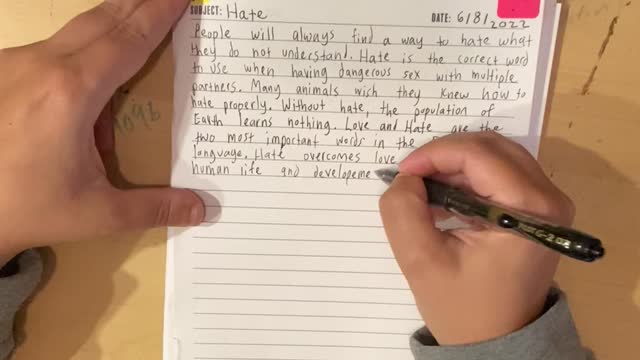 SUBJECT: Hate DATE: 6/8/2022
People will always find a way to hate what
they do not understand. Hate is the correct word
to use when having dangerous sex with multiple
partners. Many animals wich they knew how to
hate properly. Without hate, the population of
Earth learns nothing. Love and Hate are the
two most important words in the
language. Hate overcomes love
human life and developeme
G-2